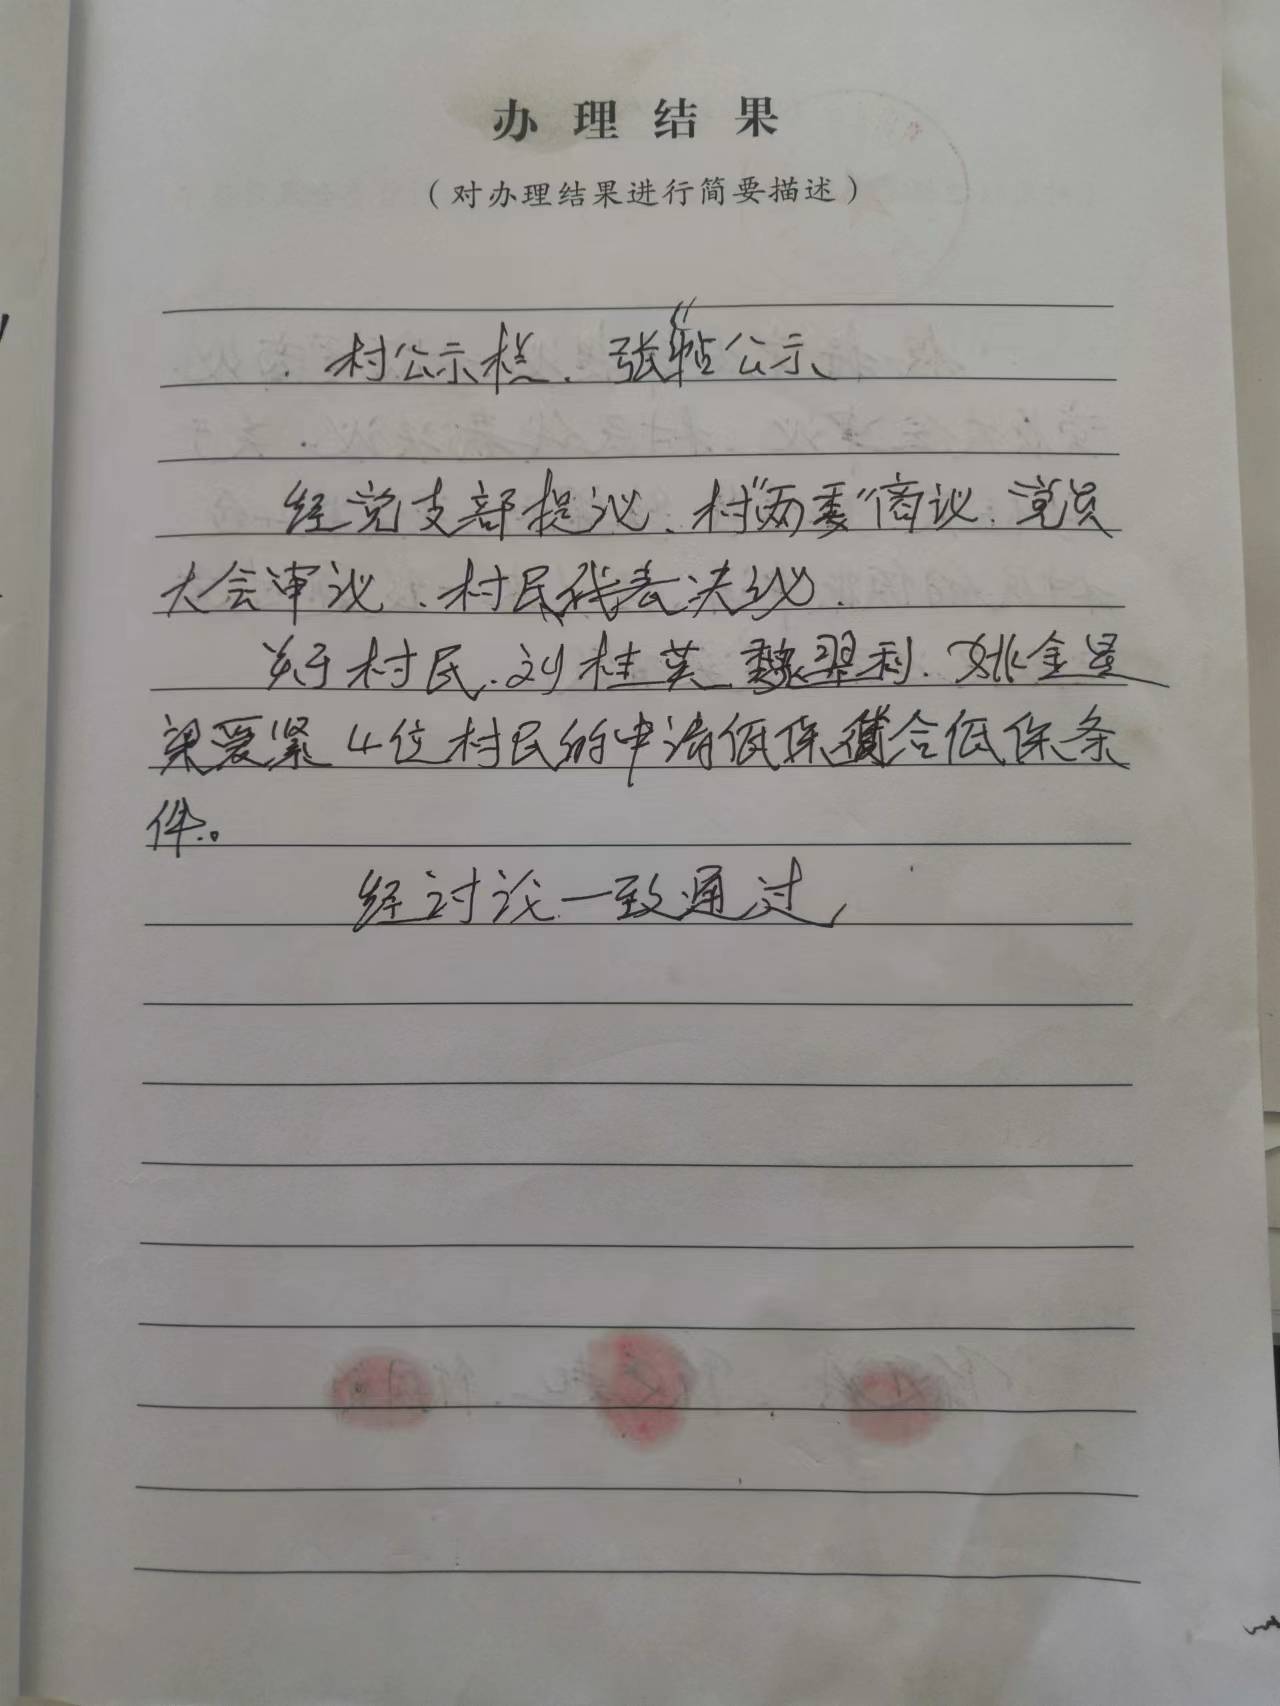 办理结果
(对办理结果进行简要描述)
村公示栏、张贴公示
经党支部提议、村"两委"商议、党员
大会审议、村民代表决议、
关于村民、刘桂英、魏翠利、姚金星
梁爱紧4位村民的申请低保符合低保条
件。
经讨论一致通过